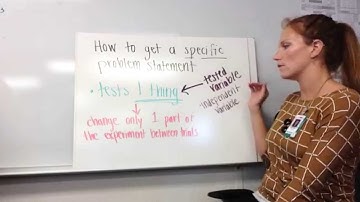 How to get a specific
problem statement
• tests 1 thing
tested
variable
independent
variable
change only 1 part of
the experiment between trials